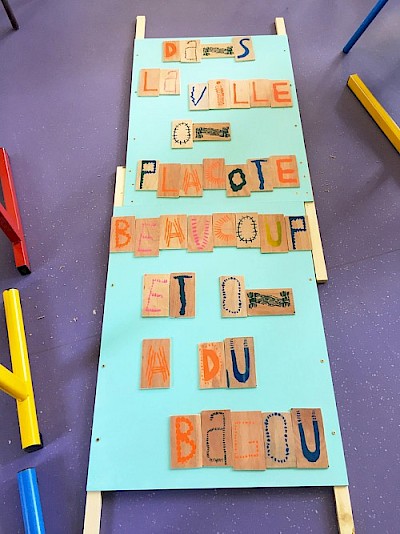 DANS
LA VILLE
ON
PLACOTE
BEAUCOUP
ET ON
A DU
BAGOU